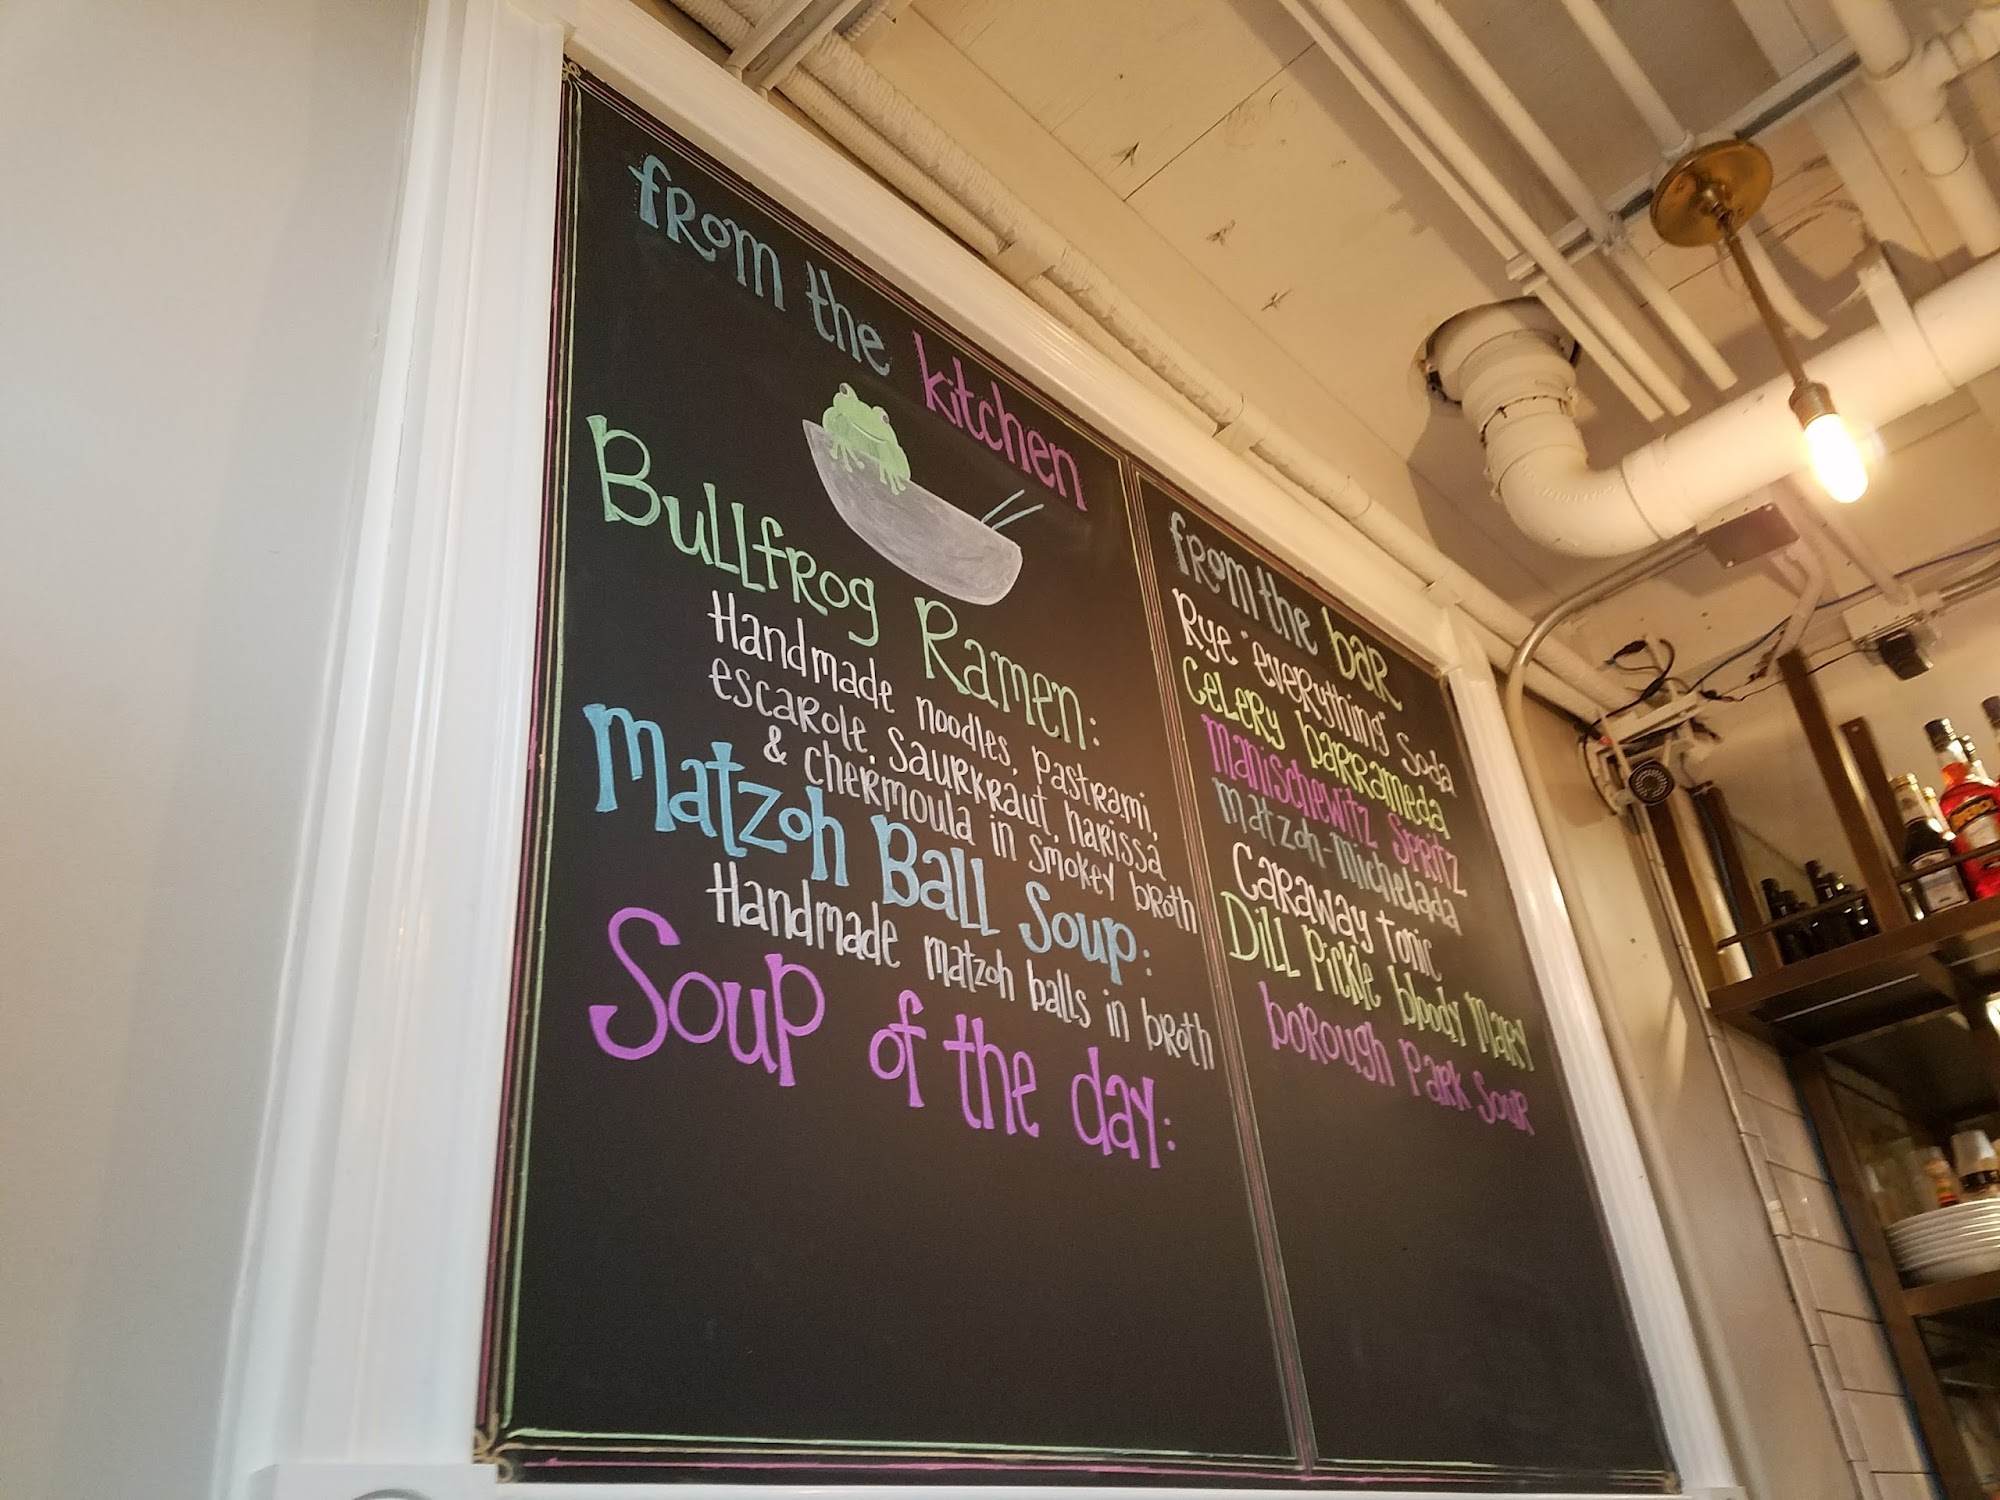 from the kitchen
Bullfrog Ramen:
Handmade noodles, pastrami,
escarole, saurkraut, harissa
& chermoula in smokey broth
Matzoh Ball Soup:
Handmade matzoh balls in broth
Soup of the day:
from the bar
Rye "everything" soda
Celery barrameda
Manischewitz Spritz
Matzoh-Michelada
Caraway tonic
Dill Pickle bloody Mary
borough Park Sour